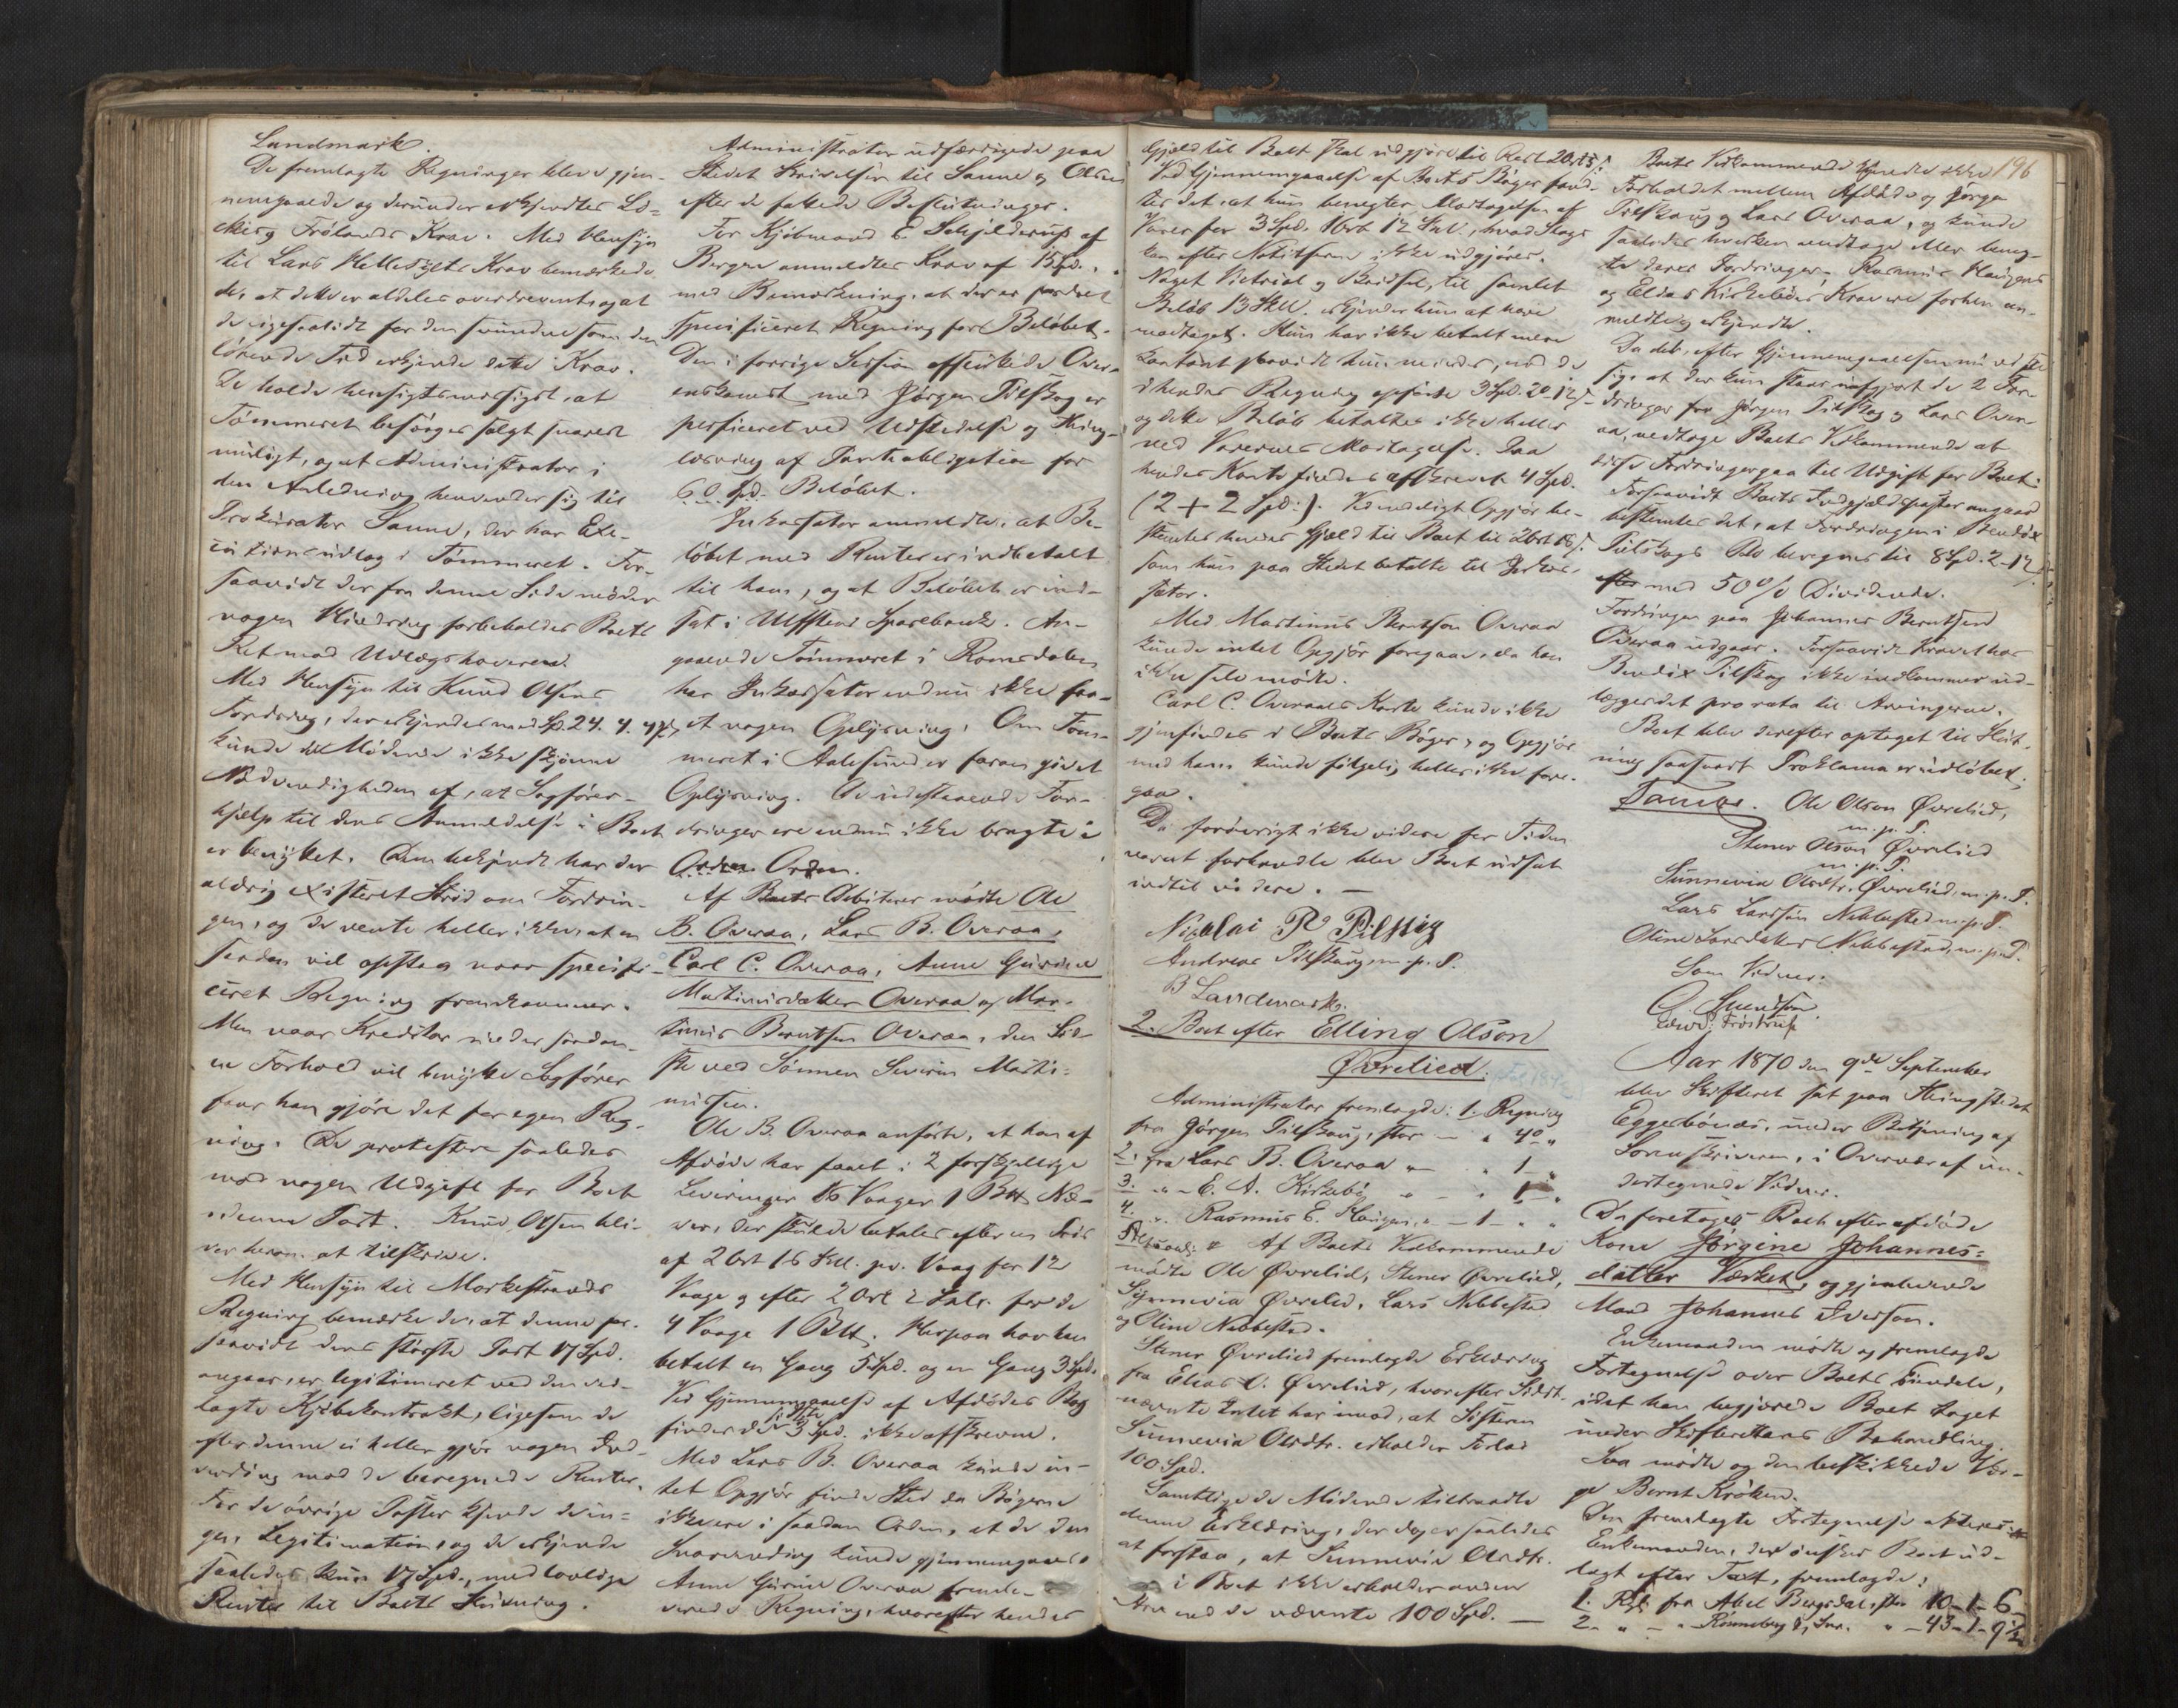 Landmark.
De fremlagte Regninger blev gjen-
nemgaaede og derunder erkjendtes Lo-
og Frölands Krav. Med Hensyn
til Lars Krav bemærkede
de, at dette er aldeles overdrevent og at
de ligesaalidt for den svundne som den
Tid erkjende dette Krav.
De holde hensigtsmæssigst, at
Tömmeret besörges solgt snarest
muligt, og at Administrator i
den Anledning henvender sig til
Prokurator Sanne, der har Exe-
cutionsudlæg i Tömmeret. For-
saavidt der fra denne Side möder
nogen Hindring forbeholdes Boets
Ret mod Udlægshaveren.
Med Hensyn til Knud Olsens
Fordring, der erkjendes med Sp. 24. 4.
kunde de Mödende ikke skjönne
Nödvendigheden af, at Sagförer-
hjælp til dens Anmeldelse i Boet
er benyttet. Dem bekjendt har der
aldrig existeret Strid om Fordrin-
gen, og de vente heller ikke, at en
saadan vil opstaa naar specifi-
ceret Regning fremkommer.
Men naar Kreditor under saadan-
ne Forhold vil benytte Sagförer
faar han gjöre det for egen Reg-
ning. De protestere saaledes
mod nogen Udgift for Boet
i denne Post. Knud Olsen bli-
ver herom at tilskrive.
Med Hensyn til Markestrands
Regning bemærke de, at denne for-
saavidt dens störste Post 17 Spd.
angaar, er legitimeret ved den ved-
lagte Kjöbekontrakt, ligesom de
efter denne ei heller gjör nogen Ind-
vending mod de beregnede Renter.
For de övrige Poster kjende de in-
gen Legitimation, og de erkjende
saaledes kun 17 Spd., med lovlige
Renter til Boets Skiftning.
Administrator udfærdigede paa
Stedet Skrivelser til Sanne og Olsen
efter de fattede Beslutninger.
For Kjöbmand E. Schjelderup af
Bergen anmeldtes Krav af 15 Spd.,
med Bemærkning, at der er fordret
specificeret Regning for Belöbet.
Den i forrige Session Over-
enskomst med Jörgen Tilskog er
perficeret ved Udstedelse og Thing-
læsning af Panteobligation for
60 Spd. Belöbet.
Inkassator anmeldte, at Be-
löbet med Renter er indbetalt
til ham, og at Belöbet er ind-
sat i Ulfstens Sparebank. An-
gaaende Tömmeret i Romsdalen
har Inkassator endnu ikke faa-
et nogen Oplysning. Om Töm-
meret i Aalesund er forøvr givet
Oplysning. De udestaaende For-
dringer ere endnu ikke bragte i
Orden.
Af Boets Debitorer mödte Ole
B. Overaa, Lars B. Overaa,
Carl C. Overaa, Anne Gurine
Martinusdatter Overaa og Mar-
tinus Berntsen Overaa, den Sid-
ste ved Sönnen Severin Marti-
nussen.
Ole B. Overaa anförte, at han af
Afdöde har faaet i 2 forskjellige
Leveringer 16 Vaager 1 Btt Næ-
ver, der skulde betales efter en Pris
af 2 Ort 16 Skil. pr. Vaag for 12
Vaage og efter 2 Ort 2 Skil. for de
4 Vaage 1 Btt. Herpaa har han
betalt en Gang 5 Spd. og en Gang 3 Spd.
Ved Gjennemgaaelse af Afdödes Bog
findes de sidste 3 Spd. ikke afskrevne.
Med Lars B. Overaa kunde in-
tet Opgjör finde Sted da Bögerne
ikke ere i saadan Orden, at de den
kunde gjennemgaaes.
Anne Gurine Overaa fremle-
verede Regning, hvorefter hendes
Gjæld til Boet skal udgjöre til Rest 2 Ort 15 s.
Ved Gjennemgaaelse af Boets Böger fand-
tes det, at hun benegter Modtagelsen af
Varer for 3 Spd. 1 Ort 12 Skil., hvad Slags
kan efter Notitserne ikke udgjöres.
Noget Victual og Brödsel, til samlet
Belöb 13 Skil. erkjender hun at have
modtaget. Hun har ikke betalt mere
kontant saavidt hun mindes, end de
i hendes Regning opförte 3 Spd. 2 O. 12 s
og dette Belöb betaltes ikke heller
ved Varernes Modtagelse. Paa
hendes Konto findes afskrevet 4 Spd.
(2 + 2 Spd.). Ved endeligt Opgjör be-
stemtes hendes Gjæld til Boet til 2 Ort 18 s.
som hun paa Stedet betalte til Inkas-
sator.
Med Martinus Berntsen Overaa
kunde intet Opgjör foregaae, da han
ikke selv mödte.
Carl C. Overaas Konto kunde ikke
gjenfindes i Boets Böger, og Opgjör
med ham kunde fölgelig heller ikke fore-
gaa.
Da foröverigt ikke videre for Tiden
var at forhandle blev Boet udsat
indtil videre. —
Nicolai R Tilskog
Andreas Tilskaug m. p. P.
B Landmark.
2. Boet efter Elling Olson
Øvrelied.
Administrator fremlagde: 1. Regning
fra Jörgen Tilskaug, stor — " 4 "
2. fra Lars B. Overaa " — " 1 "
3. " — E. A. Kirkebö " — " 1 "
4. " Rasmus E. Haugen " — 1 — " "
Af Boets Vedkommende
mödte Ole Øvrelid, Stener Øvrelied,
Synnevia Øvrelied, Lars Nebbestad
og Oline Nebbestad.
Stener Øvrelied fremlagde Erklæring
fra Elias O. Øvrelied, hvorefter Sidst-
nævnte Intet har imod, at Sösteren
Sunnevia Olsdtr. erholder Forlods
100 Spd.
Samtlige de Mödende tiltraadte
denne Erklæring, der dog er saaledes
at forstaa, at Sunnevia Olsdtr.
i Boet ikke erholder anden
Arv end de nævnte 100 Spd. —
196
Boets Vedkommende kjendte ikke
Forholdet mellem Afdöde og Jörgen
Tilskaug og Lars Overaa, og kunde
saaledes hverken vedtage eller beneg-
te deres Fordringer. Rasmus Haugens
og Eldas Kirkebös Krav ere forhen an-
meldte og erkjendte.
Da det, efter Gjennemgaaelsen nu vi-
sig, at der kun staar uafgjort de 2 For-
dringer fra Jörgen Tilskog og Lars Over-
aa, vedtoge Boets Vedkommende at
disse Fordringer gaa til Udgift for Boet.
Forsaavidt Boets Indgjældsposter angaar
bestemtes det, at Fordringen i Bendix
Tilskogs Bo beregnes til 8 Spd. 2 - 12 s.
med 50 % Dividende.
Fordringen paa Johannes Berntsen
Overaa udgaar. Forsaavidt Kravet hos
Bendix Tilskog ikke indkommer ud-
lægges det pro rata til Arvingerne.
Boet blev derefter optaget til Slut-
ning saasnart Proklama er udlöbet.
Ole Olson Øvrelied,
m. p. P.
Stener Olson Øvrelied
m. p. P.
Sunnevia Olsdtr. Øvrelied, m. p. P.
Lars Larsson Nebbestad m. p. P.
Oline Larsdatter Nebbestad, m. p. P.
Som Vidner:
Edvard Fröstrup
Aar 1870 den 9de September
blev Skifteret sat paa Thingstedet
Eggesbönæs, under Betjening af
Sorenskriveren, i Overvær af un-
dertegnede Vidner.
Da foretoges Boet efter afdöde
Kone Jørgine Johannes-
datter Værket, og gjenlevende
Mand Johannes Iverson.
Enkemanden mödte og fremlagde
Fortegnelse over Boets Eiendele,
idet han begjærede Boet taget
under Skifterettens Behandling.
Saa mödte og den beskikkede Vær-
ge Bernt Kröken.
Den fremlagte Fortegnelse
Enkemanden, der önsker Boet ud-
lagt efter Taxt, fremlagde:
1. Regn. fra Abel Bergsdal, stor 10 - 1 - 6
2. " — " Rönneberg & Sön. " — 43 - 1 - 9½